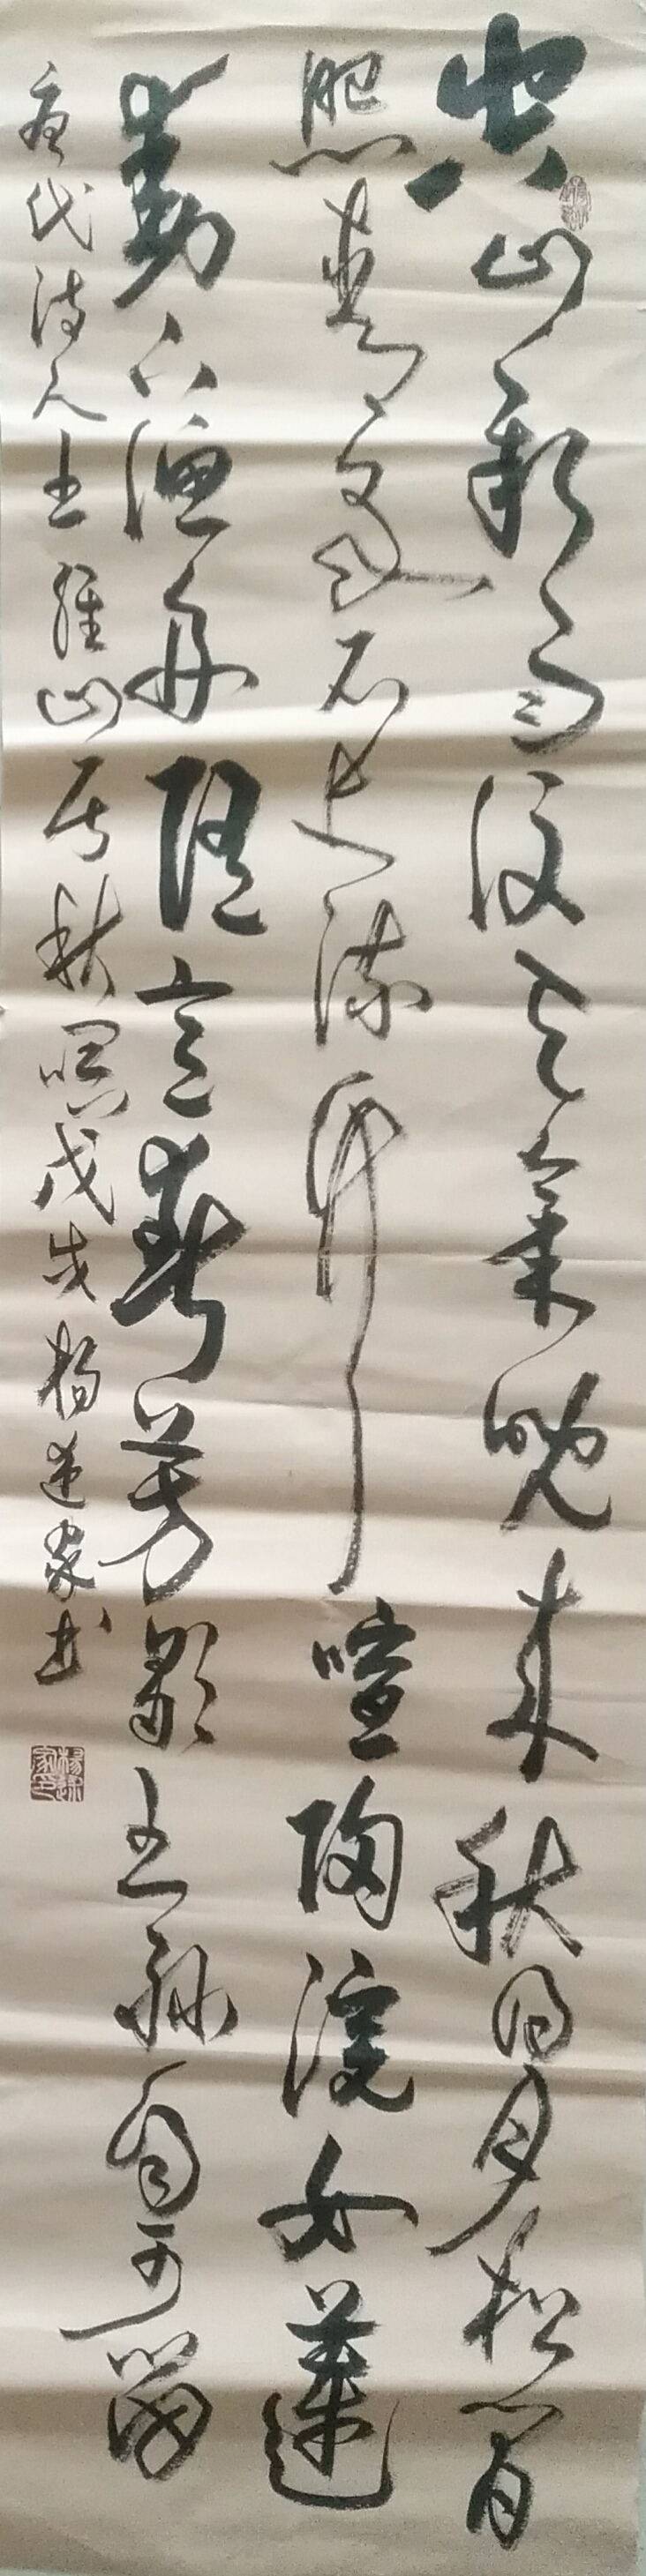 空山新雨後天氣晚来秋明月松間
照清泉石上流竹喧歸浣女蓮
動下漁舟随意春芳歇王孫自可留
唐代诗人王維山居秋暝戊戌楊家书